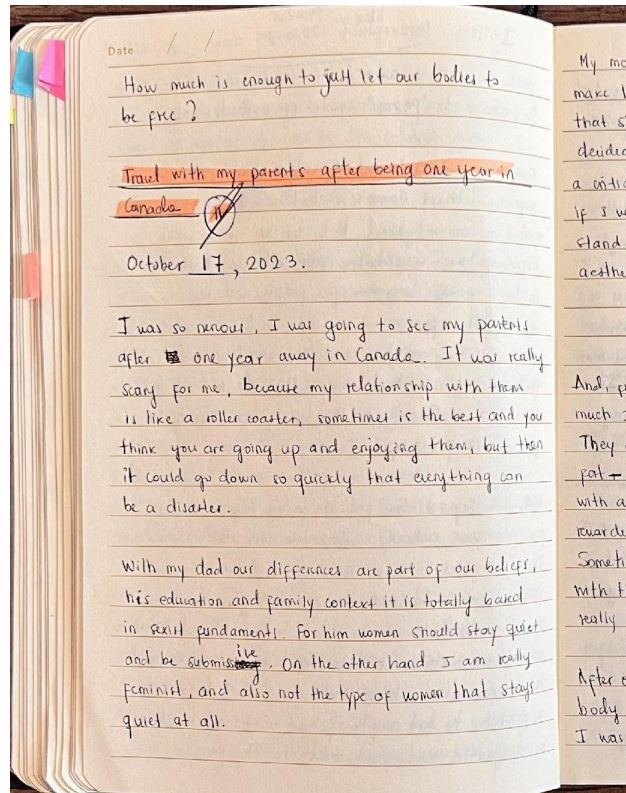 Date / /
How much is enough to just let our bodies to
be free?
Travel with my parents after being one year in
Canada
October 17, 2023.
I was so nervous, I was going to see my parents
after one year away in Canada. It was really
scary for me, because my relationship with them
is like a roller coaster, sometimes is the best and you
think you are going up and enjoying them, but then
it could go down so quickly that everything can
be a disaster.
With my dad our differences are part of our beliefs,
his education and family context it is totally based
in sexist fundaments. For him women should stay quiet
and be submissive. On the other hand I am really
feminist, and also not the type of women that stays
quiet at all.
My mo
make
that s
decided
a critic
if I w
stand
aesthe
And, p
much I
They
pat-
with a
rewarde
Someti
with t
really
After e
body
I was